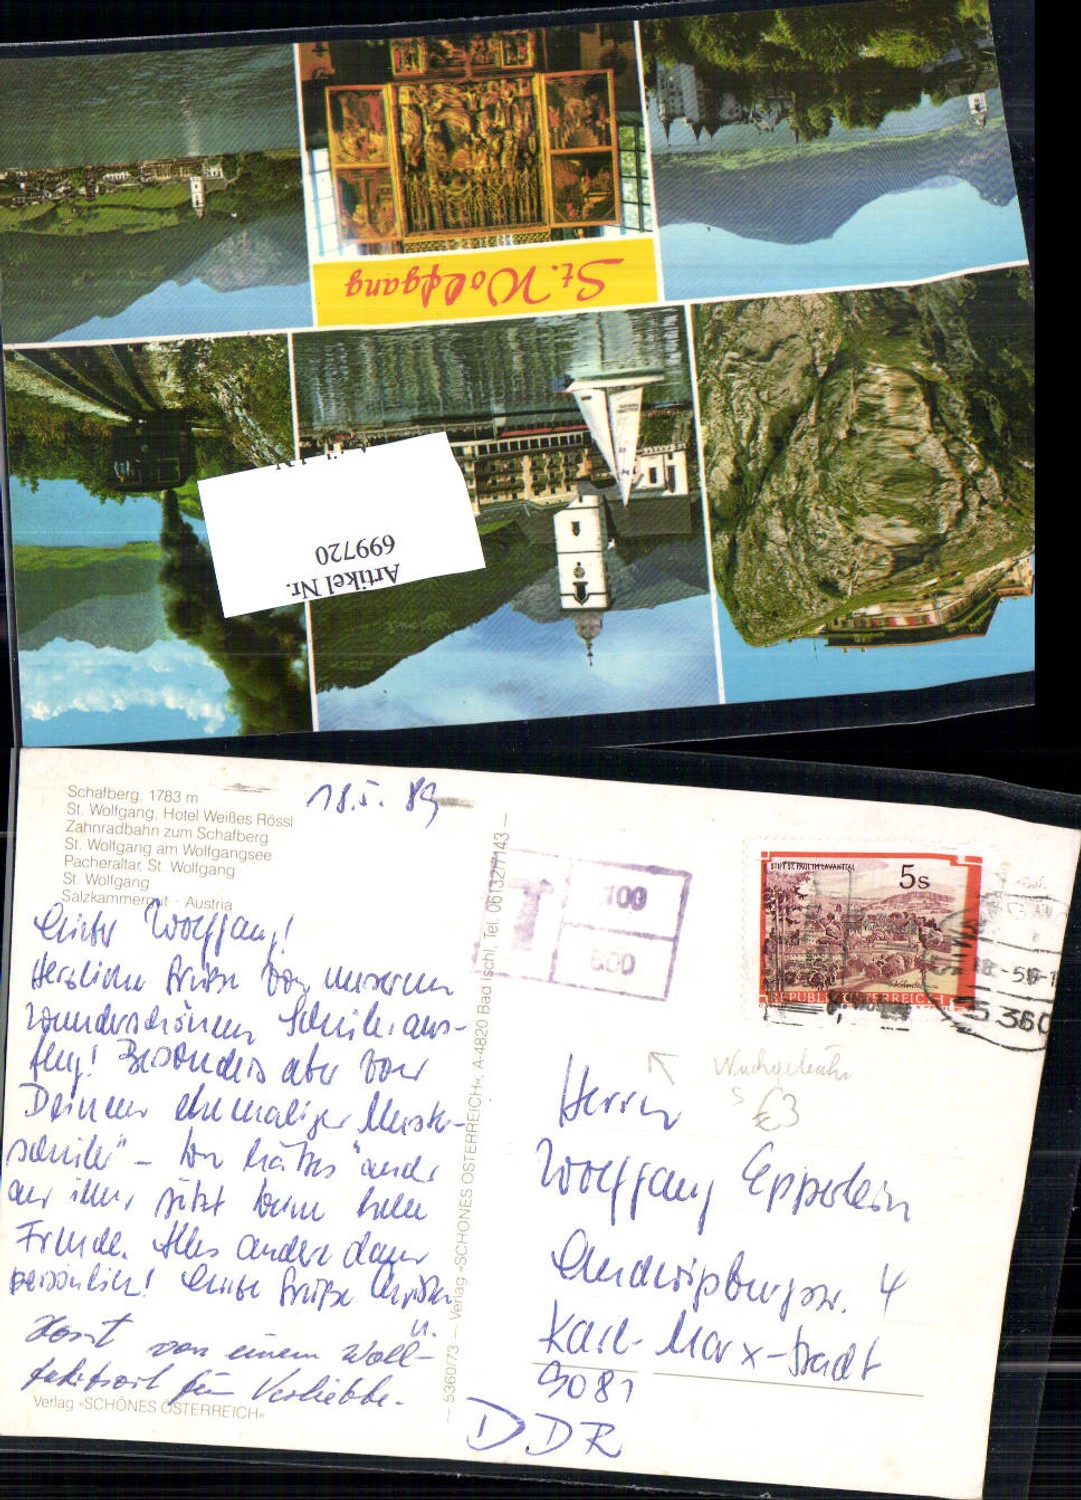 St. Wolfgang
Artikel Nr.
699720
Schafberg, 1783 m
St. Wolfgang, Hotel Weißes Rössl
Zahnradbahn zum Schafberg
St. Wolfgang am Wolfgangsee
Pacheraltar, St. Wolfgang
St. Wolfgang
Salzkammergut · Austria
18.5.89
Lieber Wolfgang!
Herzliche Grüße von unserem
wunderschönen Schüleraus-
flug! Besonders aber von
Deinem ehemaliger Meister-
schüler" –
jetzt beim
Freude. Alles andere dann
persönlich! Liebe Grüße
u.
Horst von einem Wall-
fahrtsort für Verliebte.
Verlag »SCHÖNES ÖSTERREICH«
— 5360/73 — Verlag »SCHÖNES ÖSTERREICH«, A-4820 Bad Ischl, Tel. 06132/7143 —
T 100
600
STIFT ST. PAUL IM LAVANTTAL
5s
REPUBLIK ÖSTERREICH
5360
Nachgebühr
€3
Herrn
Wolfgang Epperlein
4
Karl-Marx-Stadt
9081
DDR